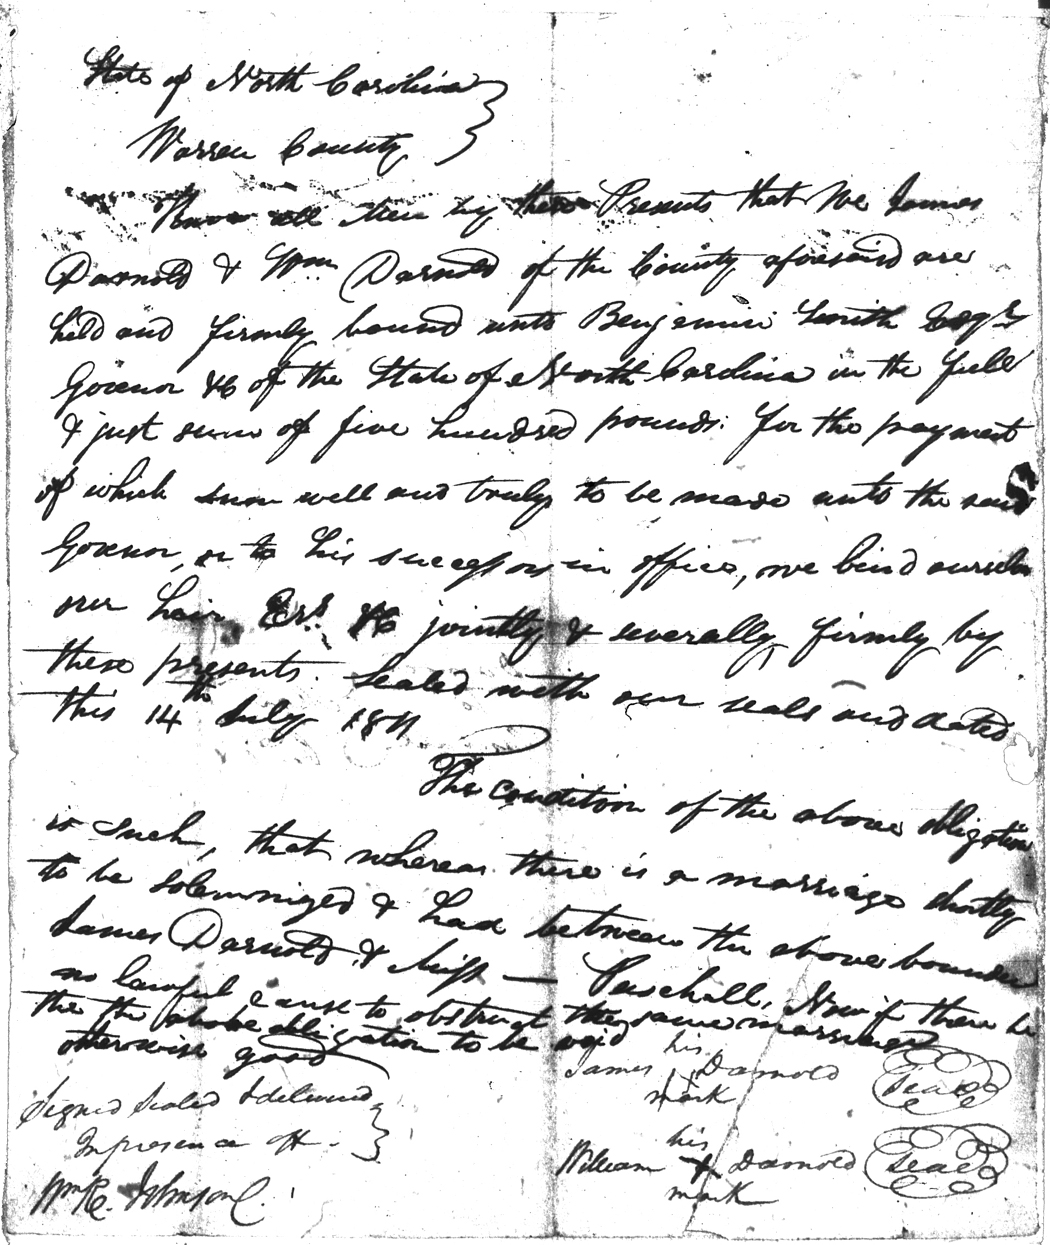 State of North Carolina
Warren County
Know all men by these Presents that We James
Darnold & Wm. Darnold of the County aforesaid are
held and firmly bound unto Benjamin Smith Esqr.
Govenor &C of the State of North Carolina in the full
& just sum of five hundred pounds. for the payment
of which sum well and truly to be made unto the said
Govenor, or to his successors in office, we bind ourselves
our heirs Exrs. &C jointly & severally, firmly by
these presents. Sealed with our seals and dated
this 14th July 1811
The condition of the above obligation
is such, that whereas there is a marriage shortly
to be solemnized & had between the above bounden
James Darnold & Miss — Paschall, Now if there be
no lawful cause to obstruct the same marriage
the the above obligation to be void
otherwise good
James his mark Darnold Seal
Signed Sealed & delivered
In presence off.
William his X mark Darnold Seal
Wm R. Johnson